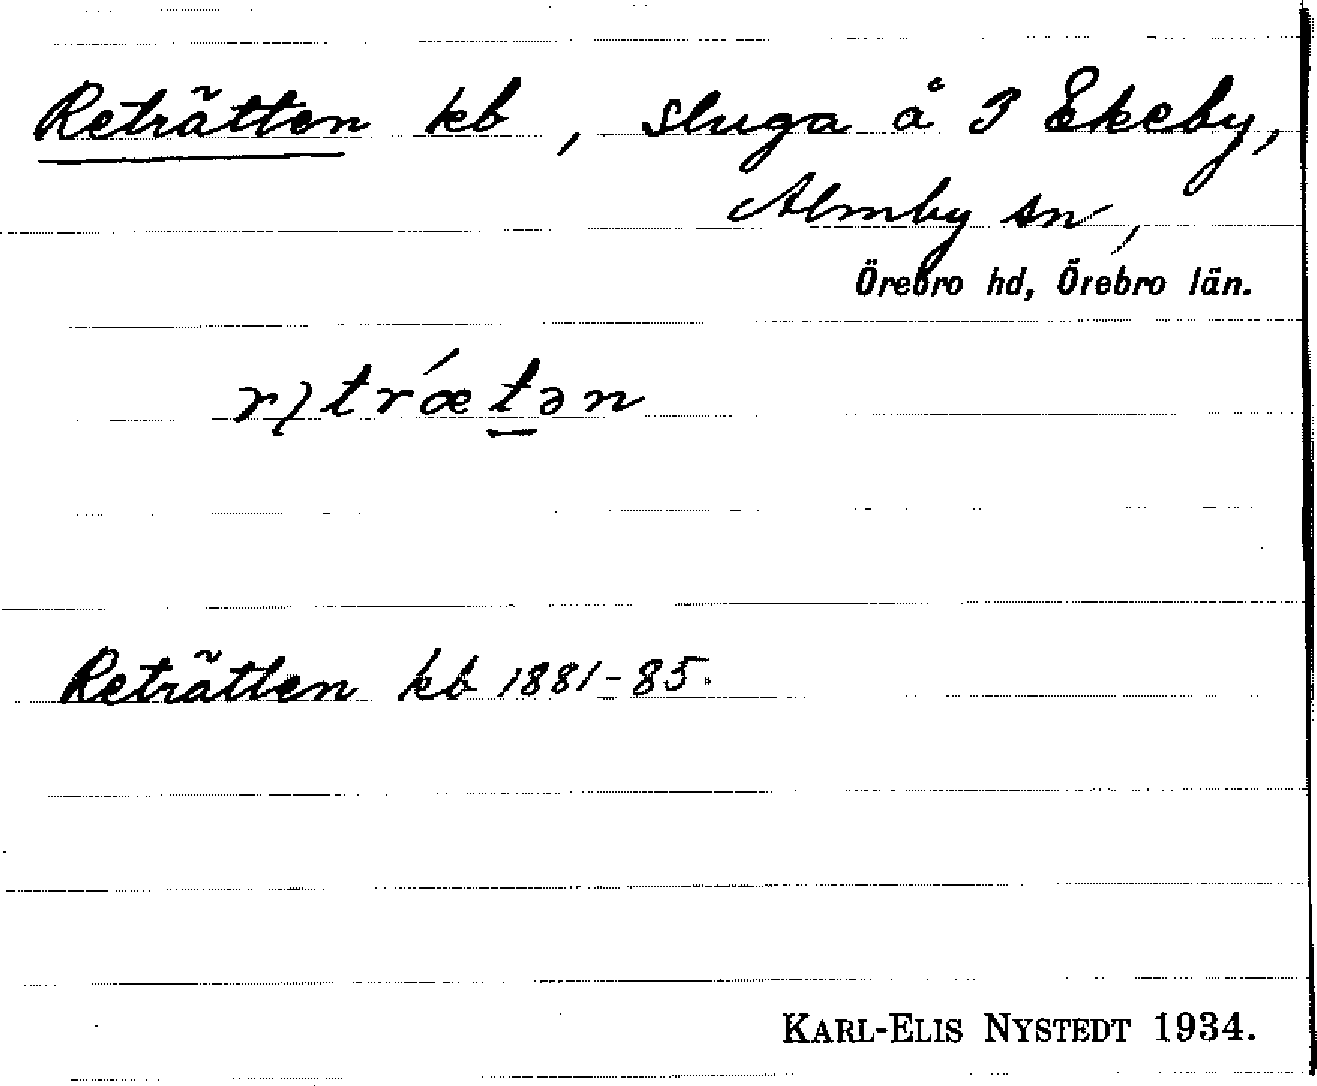 Reträtten kb, stuga å 3 Ekeby,
Almby sn,
Örebro hd, Örebro län.
rıtrǽt̲ən
Reträtten kb 1881-85.
KARL-ELIS NYSTEDT 1934.